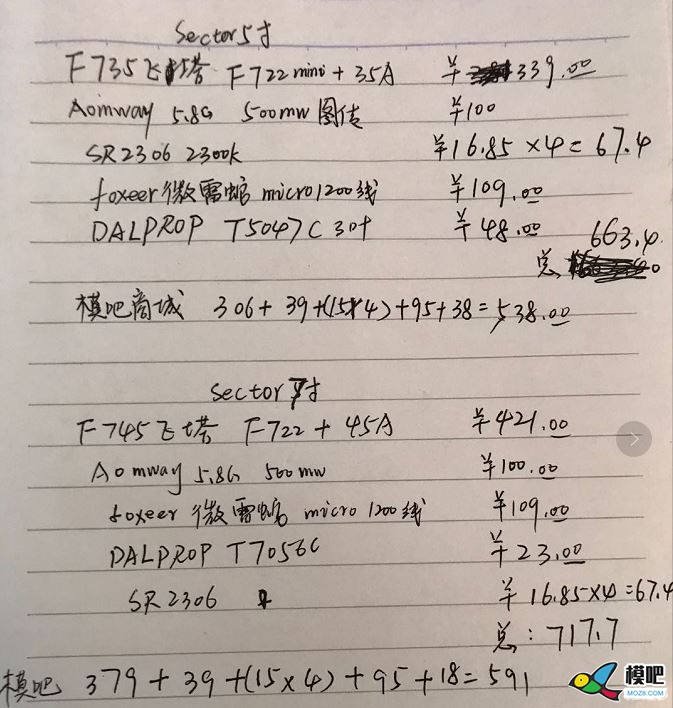 Sector 5寸
F735飞塔 F722mini + 35A ¥339.00
Aomway 5.8G 500mw 图传 ¥100
SR2306 2300k ¥16.85 ×4 = 67.4
foxeer 微雷蝠 micro1200线 ¥109.00
DALPROP T5047C 3叶 ¥48.00
总 663.4
模吧商城 306+ 39+(15×4)+95+38= 538.00
Sector 7寸
F745飞塔 F722 + 45A ¥421.00
Aomway 5.8G 500mw ¥100.00
foxeer 微雷蝠 micro 1200线 ¥109.00
DALPROP T7056C ¥23.00
SR2306 ¥16.85×4=67.4
总:717.7
模吧 379 + 39 +(15×4) + 95 +18= 591
模吧
MOZ8.COM